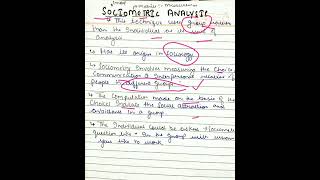 SOCIOMETRIC ANALYSIS
↳ This technique uses group
than the Individual as its unit of
Analysis.
↳ Has its origin in Sociology.
↳ Sociometry Involves measuring the Choice,
Communication & Interpersonal relation of
people in different group.
↳ The Computation made on the basis of the
Choice! Indicate the Social attraction and
avoidance in a group.
↳ The Individual could be asked
question like - In the group with whom
you like to work.